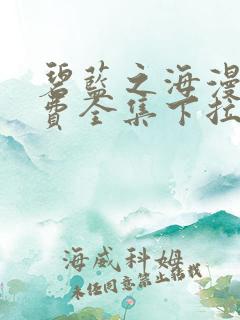 碧蓝之海漫
费全集下拉
海威科姆
未经同意禁止转载